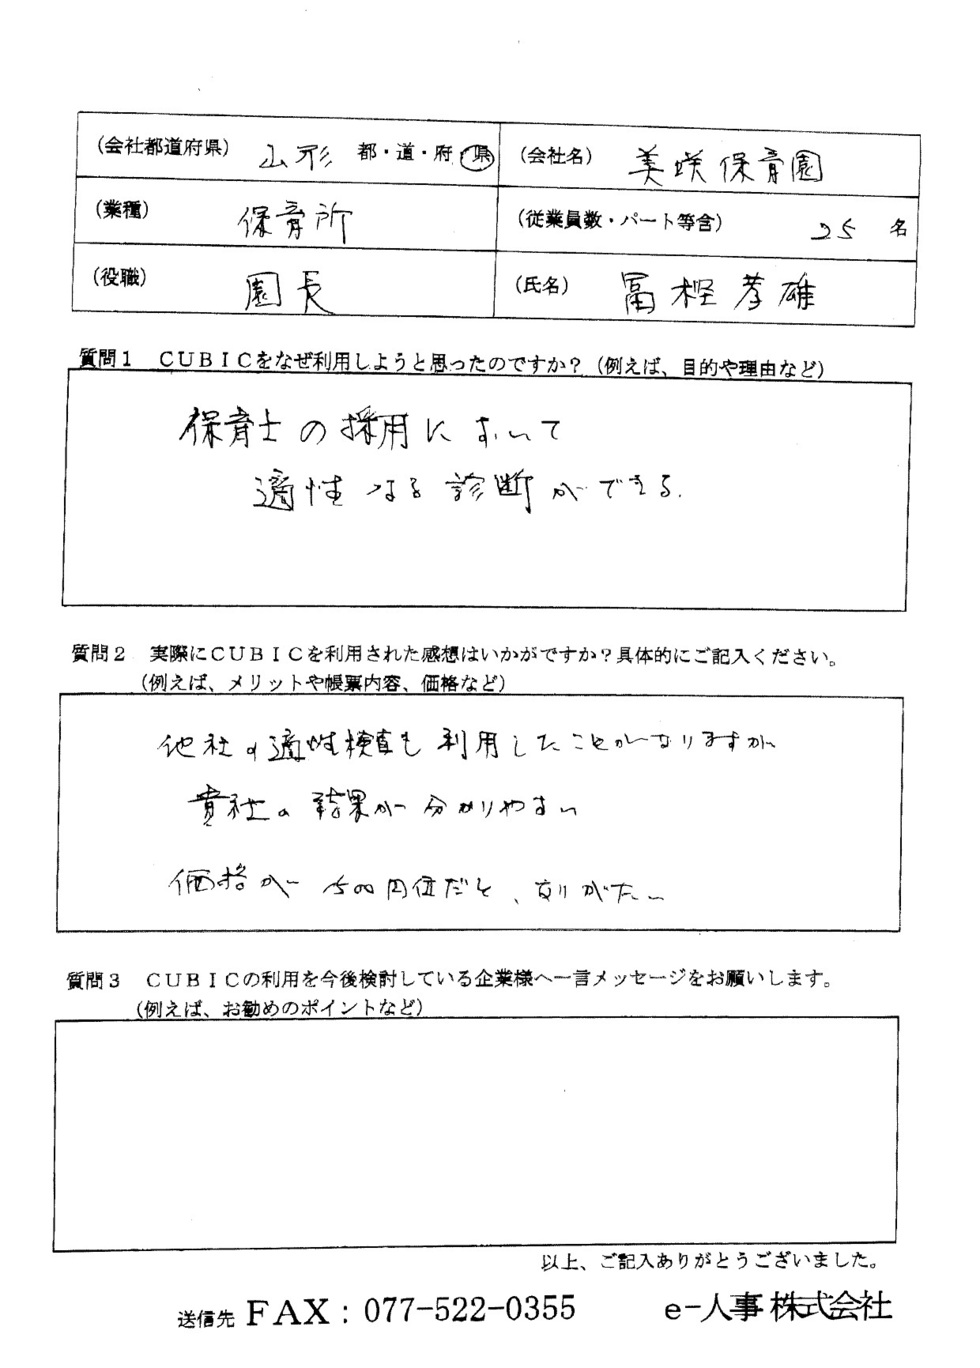 (会社都道府県) 山形 都・道・府・県 (会社名) 美咲保育園
(業種) 保育所 (従業員数・パート等含) 25 名
(役職) 園長 (氏名) 冨樫孝雄
質問1 CUBICをなぜ利用しようと思ったのですか?(例えば、目的や理由など)
保育士の採用において
適性なる診断ができる.
質問2 実際にCUBICを利用された感想はいかがですか?具体的にご記入ください。
(例えば、メリットや帳票内容、価格など)
他社の適性検査も利用したことがありますが
貴社の結果が分かりやすい
価格が 500円位だと、ありがたい
質問3 CUBICの利用を今後検討している企業様へ一言メッセージをお願いします。
(例えば、お勧めのポイントなど)
以上、ご記入ありがとうございました。
送信先 FAX:077-522-0355 e-人事株式会社